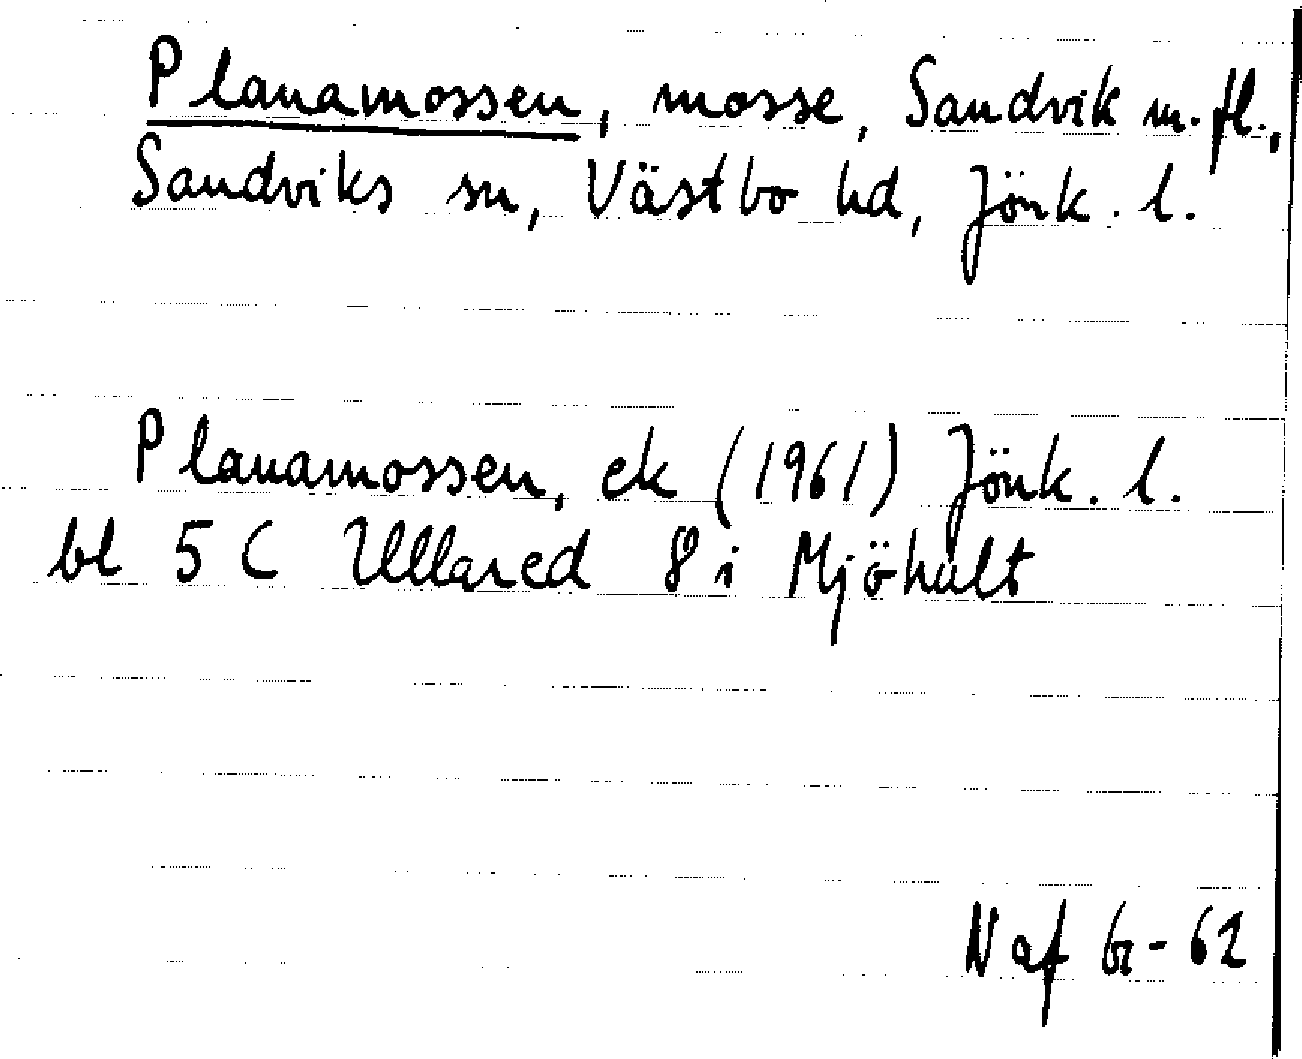 Planamossen, mosse, Sandvik m.fl.,
Sandviks sn, Västbo hd, Jönk. l.
Planamossen, ek (1961) Jönk. l.
bl 5 C Ullared 8 i Mjöhult
N af 62